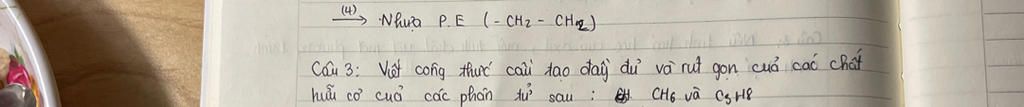 (4) → Nhựa P.E (-CH2 - CH2)
Câu 3: Viết công thức cấu tạo đầy đủ và rút gọn của các chất
hữu cơ của các phân tử sau : CH6 và C3H8